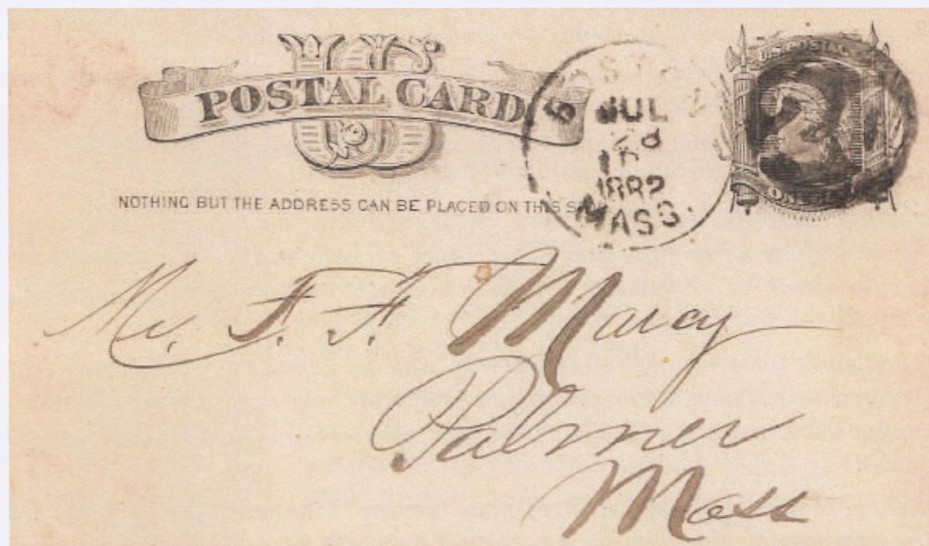 US
POSTAL CARD
NOTHING BUT THE ADDRESS CAN BE PLACED ON THIS
BOSTON
JUL
1882
MASS.
U.S. POSTAGE
Mr. F. F. Marcy
Palmer
Mass